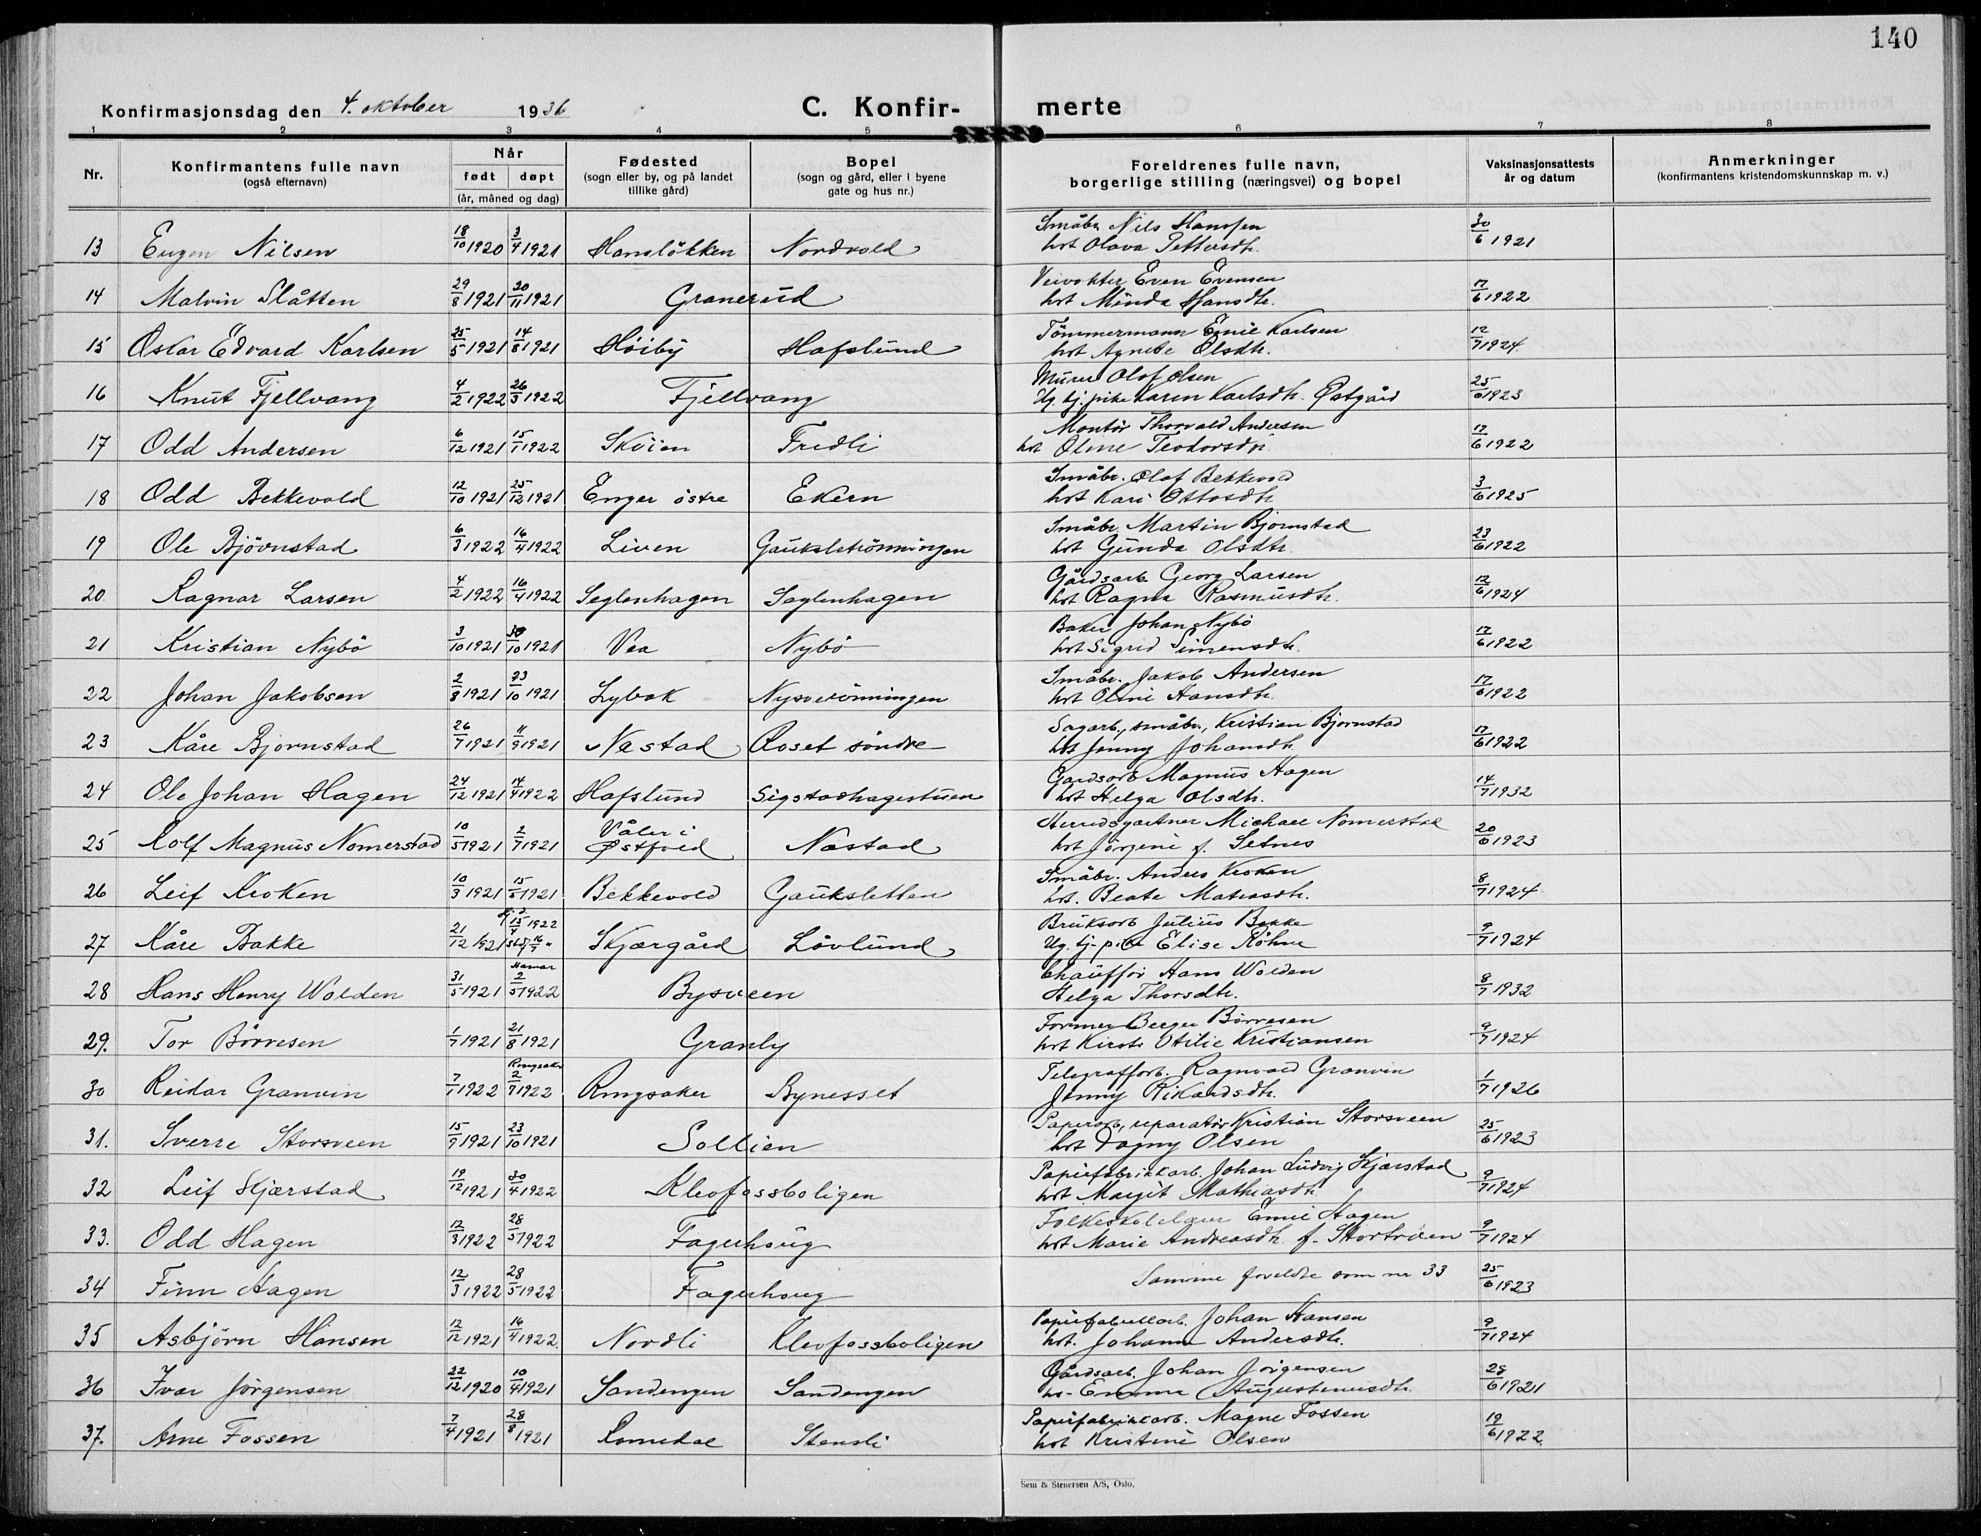 140
Konfirmasjonsdag den 4. oktober 1936
C. Konfir- merte
1 2 3 4 5 6 7 8
Nr.
Konfirmantens fulle navn
(også efternavn)
Når
født døpt
(år, måned og dag)
Fødested
(sogn eller by, og på landet
tillike gård)
Bopel
(sogn og gård, eller i byene
gate og hus nr.)
Foreldrenes fulle navn,
borgerlige stilling (næringsvei) og bopel
Vaksinasjonsattests
år og datum
Anmerkninger
(konfirmantens kristendomskunnskap m. v.)
13 Eugen Nilsen 18/10 1920 3/4 1921 Hansløkken Nordvold Småbr. Nils Hanssen 30/6 1921
hst Olava Pettersdtr.
14 Malvin Slåtten 29/8 1921 20/11 1921 Granerud Veivokter Even Evensen 17/6 1922
hst Minda Hansdtr.
15 Oskar Edvard Karlsen 25/5 1921 14/8 1921 Høiby Hafslund Tømmermann Emil Karlsen 12/7 1924
hst Agnete Olsdtr.
16 Knut Fjellvang 4/2 1922 26/3 1922 Fjellvang Murer Olof Olsen 25/6 1923
Ug. tj. pike Karen Karlsdtr. Østgård
17 Odd Andersen 6/12 1921 15/1 1922 Skøien Fredli Montør Thorvald Andersen 17/6 1922
hst Oline Teodorsdtr
18 Odd Bekkevold 12/10 1921 25/12 1921 Enger østre Ekern Småbr. Olaf Bekkevold 3/6 1925
hst Kari Ottosdtr
19 Ole Bjørnstad 6/3 1922 16/4 1922 Liven Gaukslettrønningen Småbr. Martin Bjørnstad 23/6 1922
hst Gunda Olsdtr.
20 Ragnar Larsen 4/2 1922 16/4 1922 Seglenhagen Saglenhagen Gårdsarb. Georg Larsen 12/6 1924
hst Ragna Rasmusdtr.
21 Kristian Nybø 3/10 1921 30/10 1921 Vea Nybø Baker Johan Nybø 17/6 1922
hst Sigrid Simensdtr.
22 Johan Jakobsen 2/8 1921 23/10 1921 Lybak Nysverønningen Småbr. Jakob Andersen 17/6 1922
hst Oline Hansdtr.
23 Kåre Bjørnstad 26/7 1921 11/9 1921 Næstad Roset søndre Sagarb., småbr., Kristian Bjørnstad 17/6 1922
hst Jenny Johansdtr
24 Ole Johan Hagen 24/12 1921 14/4 1922 Hafslund Sigstadhagestuen Gårdsarb Magnus Hagen 14/7 1932
hst Helga Olsdtr.
25 Rolf Magnus Nomerstad 10/5 1921 2/7 1921 Våler i Østfold Næstad Herredsgartner Michael Nomerstad 20/6 1923
hst Jørgine f. Setnes
26 Leif Kroken 10/3 1921 15/5 1921 Bekkevold Gaukslettten Småbr. Anders Kroken 8/7 1924
hst. Beate Matiasdtr.
27 Kåre Bakke 21/12 1921 15/1 1922 Skjærgård Løvlund Bruksarb Julius Bakke 9/7 1924
Ug. tj. pike Elise Køhne
28 Hans Henry Wolden 31/5 1921 Hamar 2/5 1922 Bysveen Chauffør Hans Wolden 8/7 1932
Helga Thorsdtr.
29. Tor Børresen 1/7 1921 21/8 1921 Granly Former Berger Børresen 9/7 1924
hst Kirsti Otilie Kristiansen
30 Reidar Granvin 7/1 1922 Ringsaker 2/7 1922 Ringsaker Bynesset Telegrafforb. Ragnvald Granvin 1/7 1926
Jenny Rikardsdtr.
31. Sverre Storsveen 15/9 1921 23/10 1921 Sollien Papirarb., reparatør Kristian Storsveen 25/6 1923
hst Dagny Olsen
32 Leif Skjærstad 19/12 1921 30/4 1922 Klevfossboligen Papirfabrikkarb. Johan Ludvig Skjærstad 9/7 1924
hst Margit Mathiasdtr
33. Odd Hagen 12/3 1922 28/5 1922 Fagerhoug Folkeskolelærer Emil Hagen 9/7 1924
hst Marie Andreasdtr. f. Stortrøen
34 Finn Hagen 12/3 1922 28/5 1922 Fagerhoug Samme foreldre som nr 33 25/6 1923
35 Asbjørn Hansen 12/12 1921 16/4 1922 Nordli Klevfossboligen Papirfabrikkarb. Johan Hansen 9/7 1924
hst. Johanne Andersdtr.
36 Ivar Jørgensen 22/12 1920 10/4 1921 Sandengen Sandengen Gårdsarb. Johan Jørgensen 28/6 1921
hs- Emma Augustinusdtr.
37. Arne Fossen 7/4 1921 28/8 1921 Romedal Stensli Papirfabrikkarb. Magne Fossen 19/6 1922
hst Kristine Olsen
Sem & Stenersen A/S, Oslo.